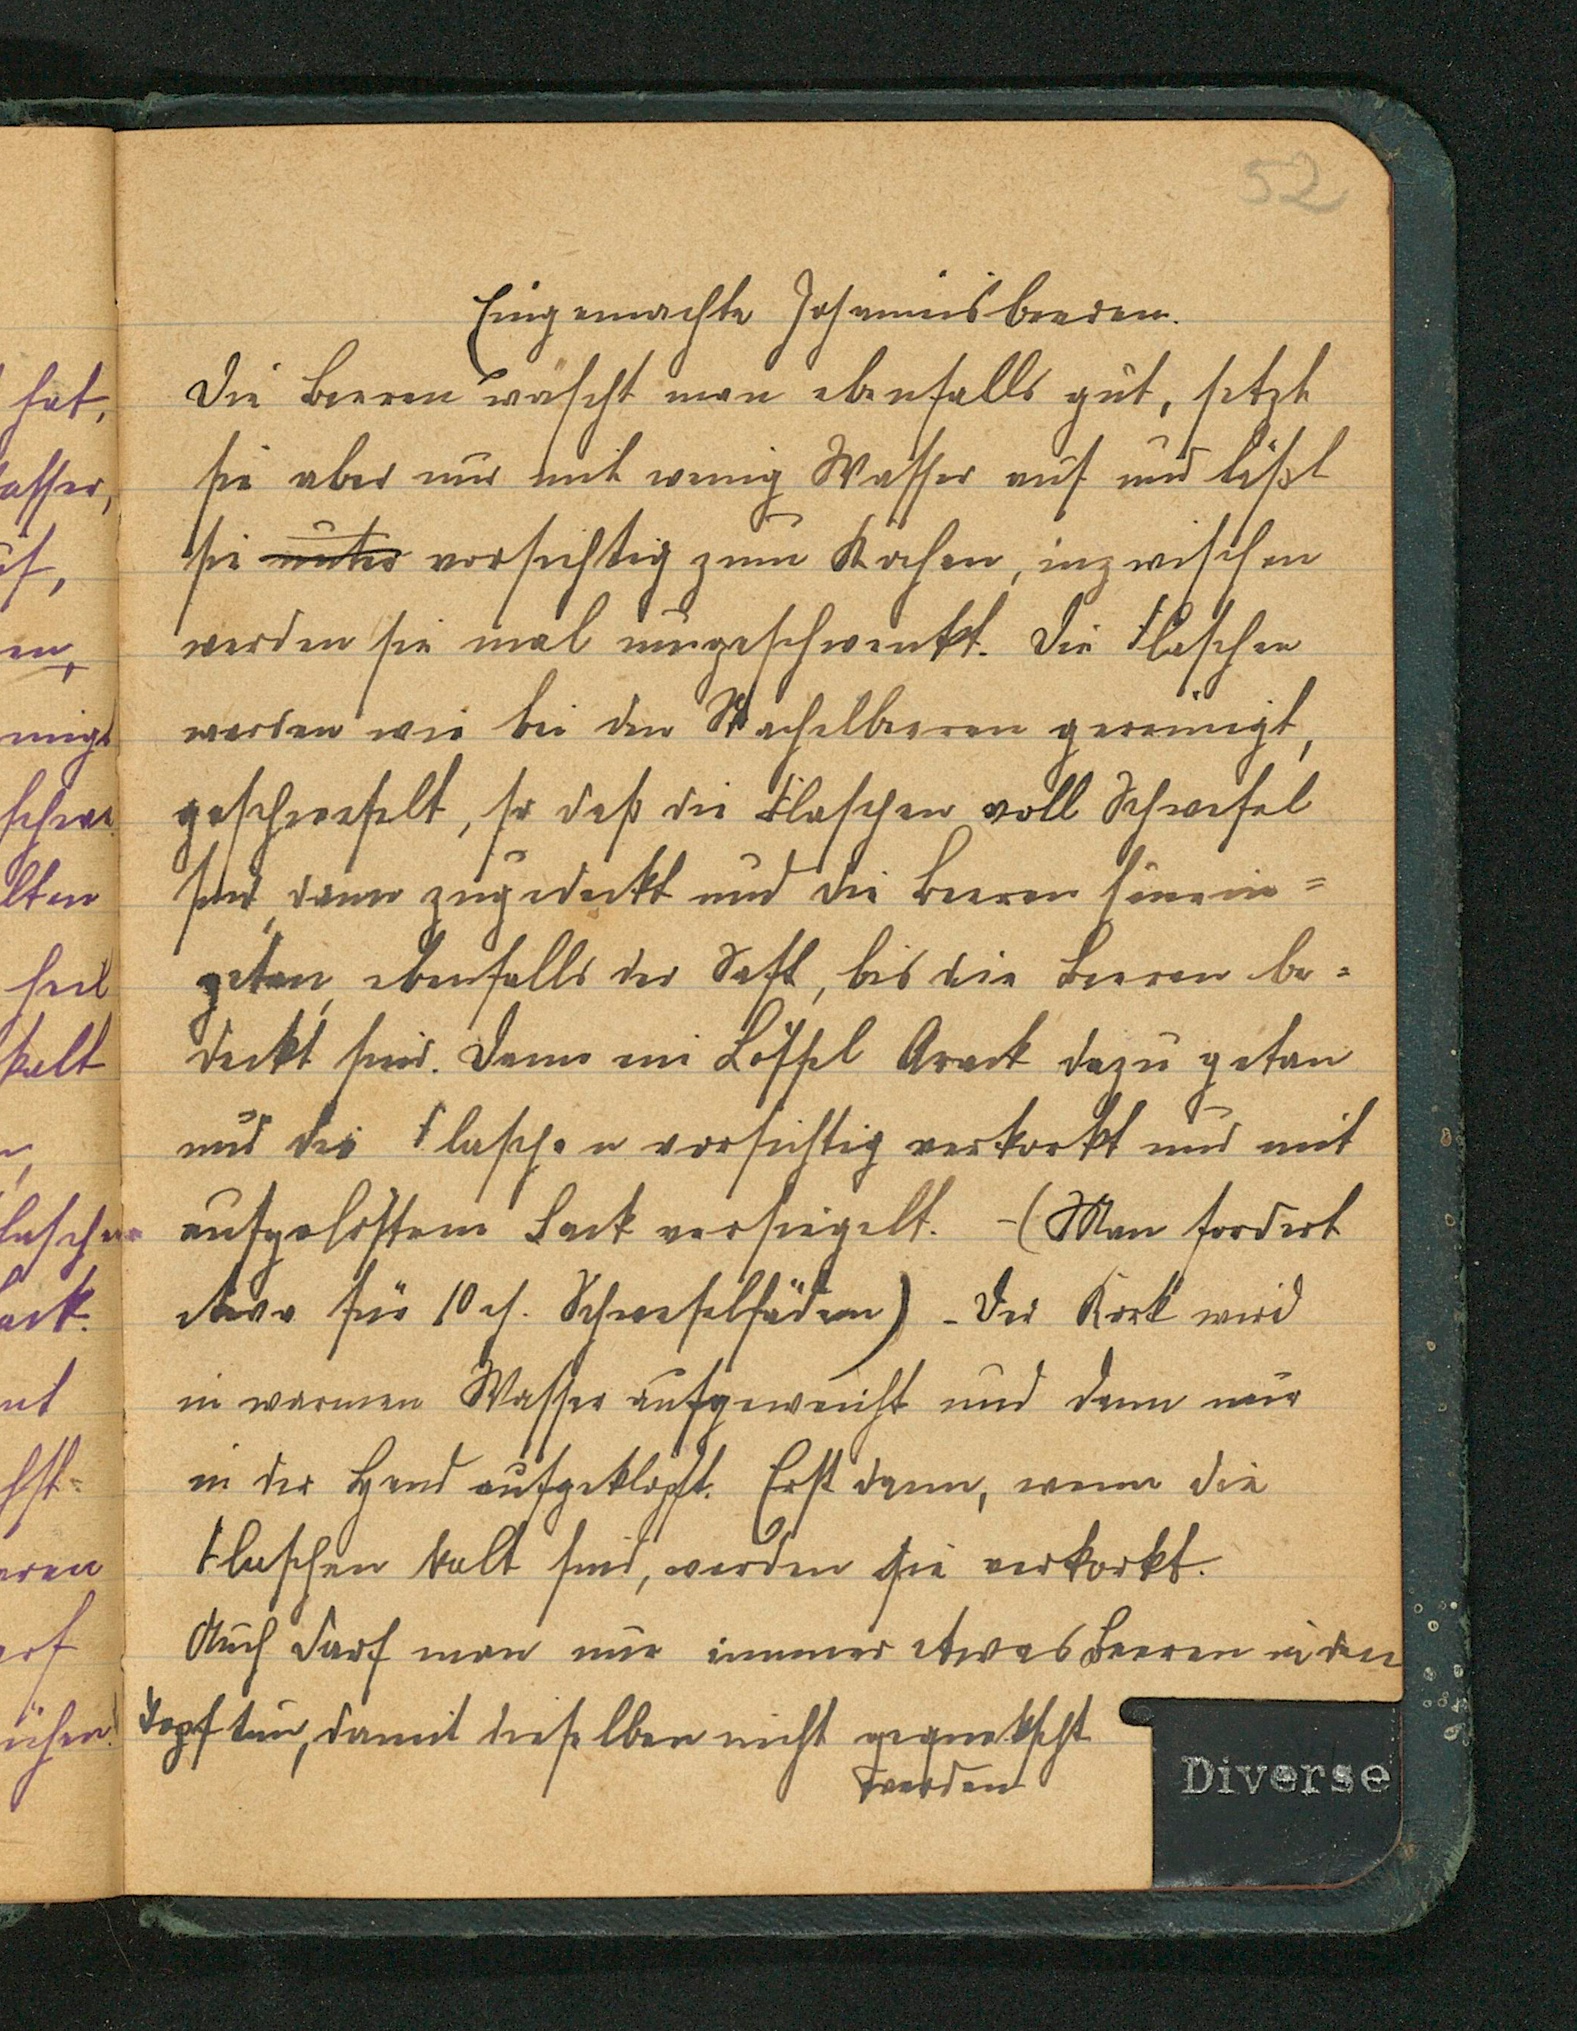 52
Eingemachte Johannisbeeren.
Die Beeren wäscht man ebenfalls gut, setzt
sie aber nur mit wenig Wasser auf und läßt
sie unter vorsichtig zum Kochen, inzwischen
werden sie mal umgeschwenkt. Die Flaschen
werden wie bei den Stachelbeeren gereinigt,
geschwefelt, so daß die Flaschen voll Schwefel
sind, dann zugedeckt und die Beeren hinein=
getan, ebenfalls der Saft, bis die Beeren be=
deckt sind. Dann ein Löffel Arack dazu getan
und die Flaschen vorsichtig verkorkt und mit
aufgelöstem Lack versiegelt. -(Man fordert
etwa für 10 ₰. Schwefelfäden) - Der Kork wird
in warmen Wasser aufgeweicht und dann nur
in der Hand aufgeklopft. Erst dann, wenn die
Flaschen kalt sind, werden sie verkorkt.
Auch darf man nur immer etwas Beeren in den
Topf tun, damit dieselben nicht gequetscht
werden
Diverse
hat,
asser,
uf,
en,
nigt
schwe
lten
kalt
laschen
ack.
eren
arf